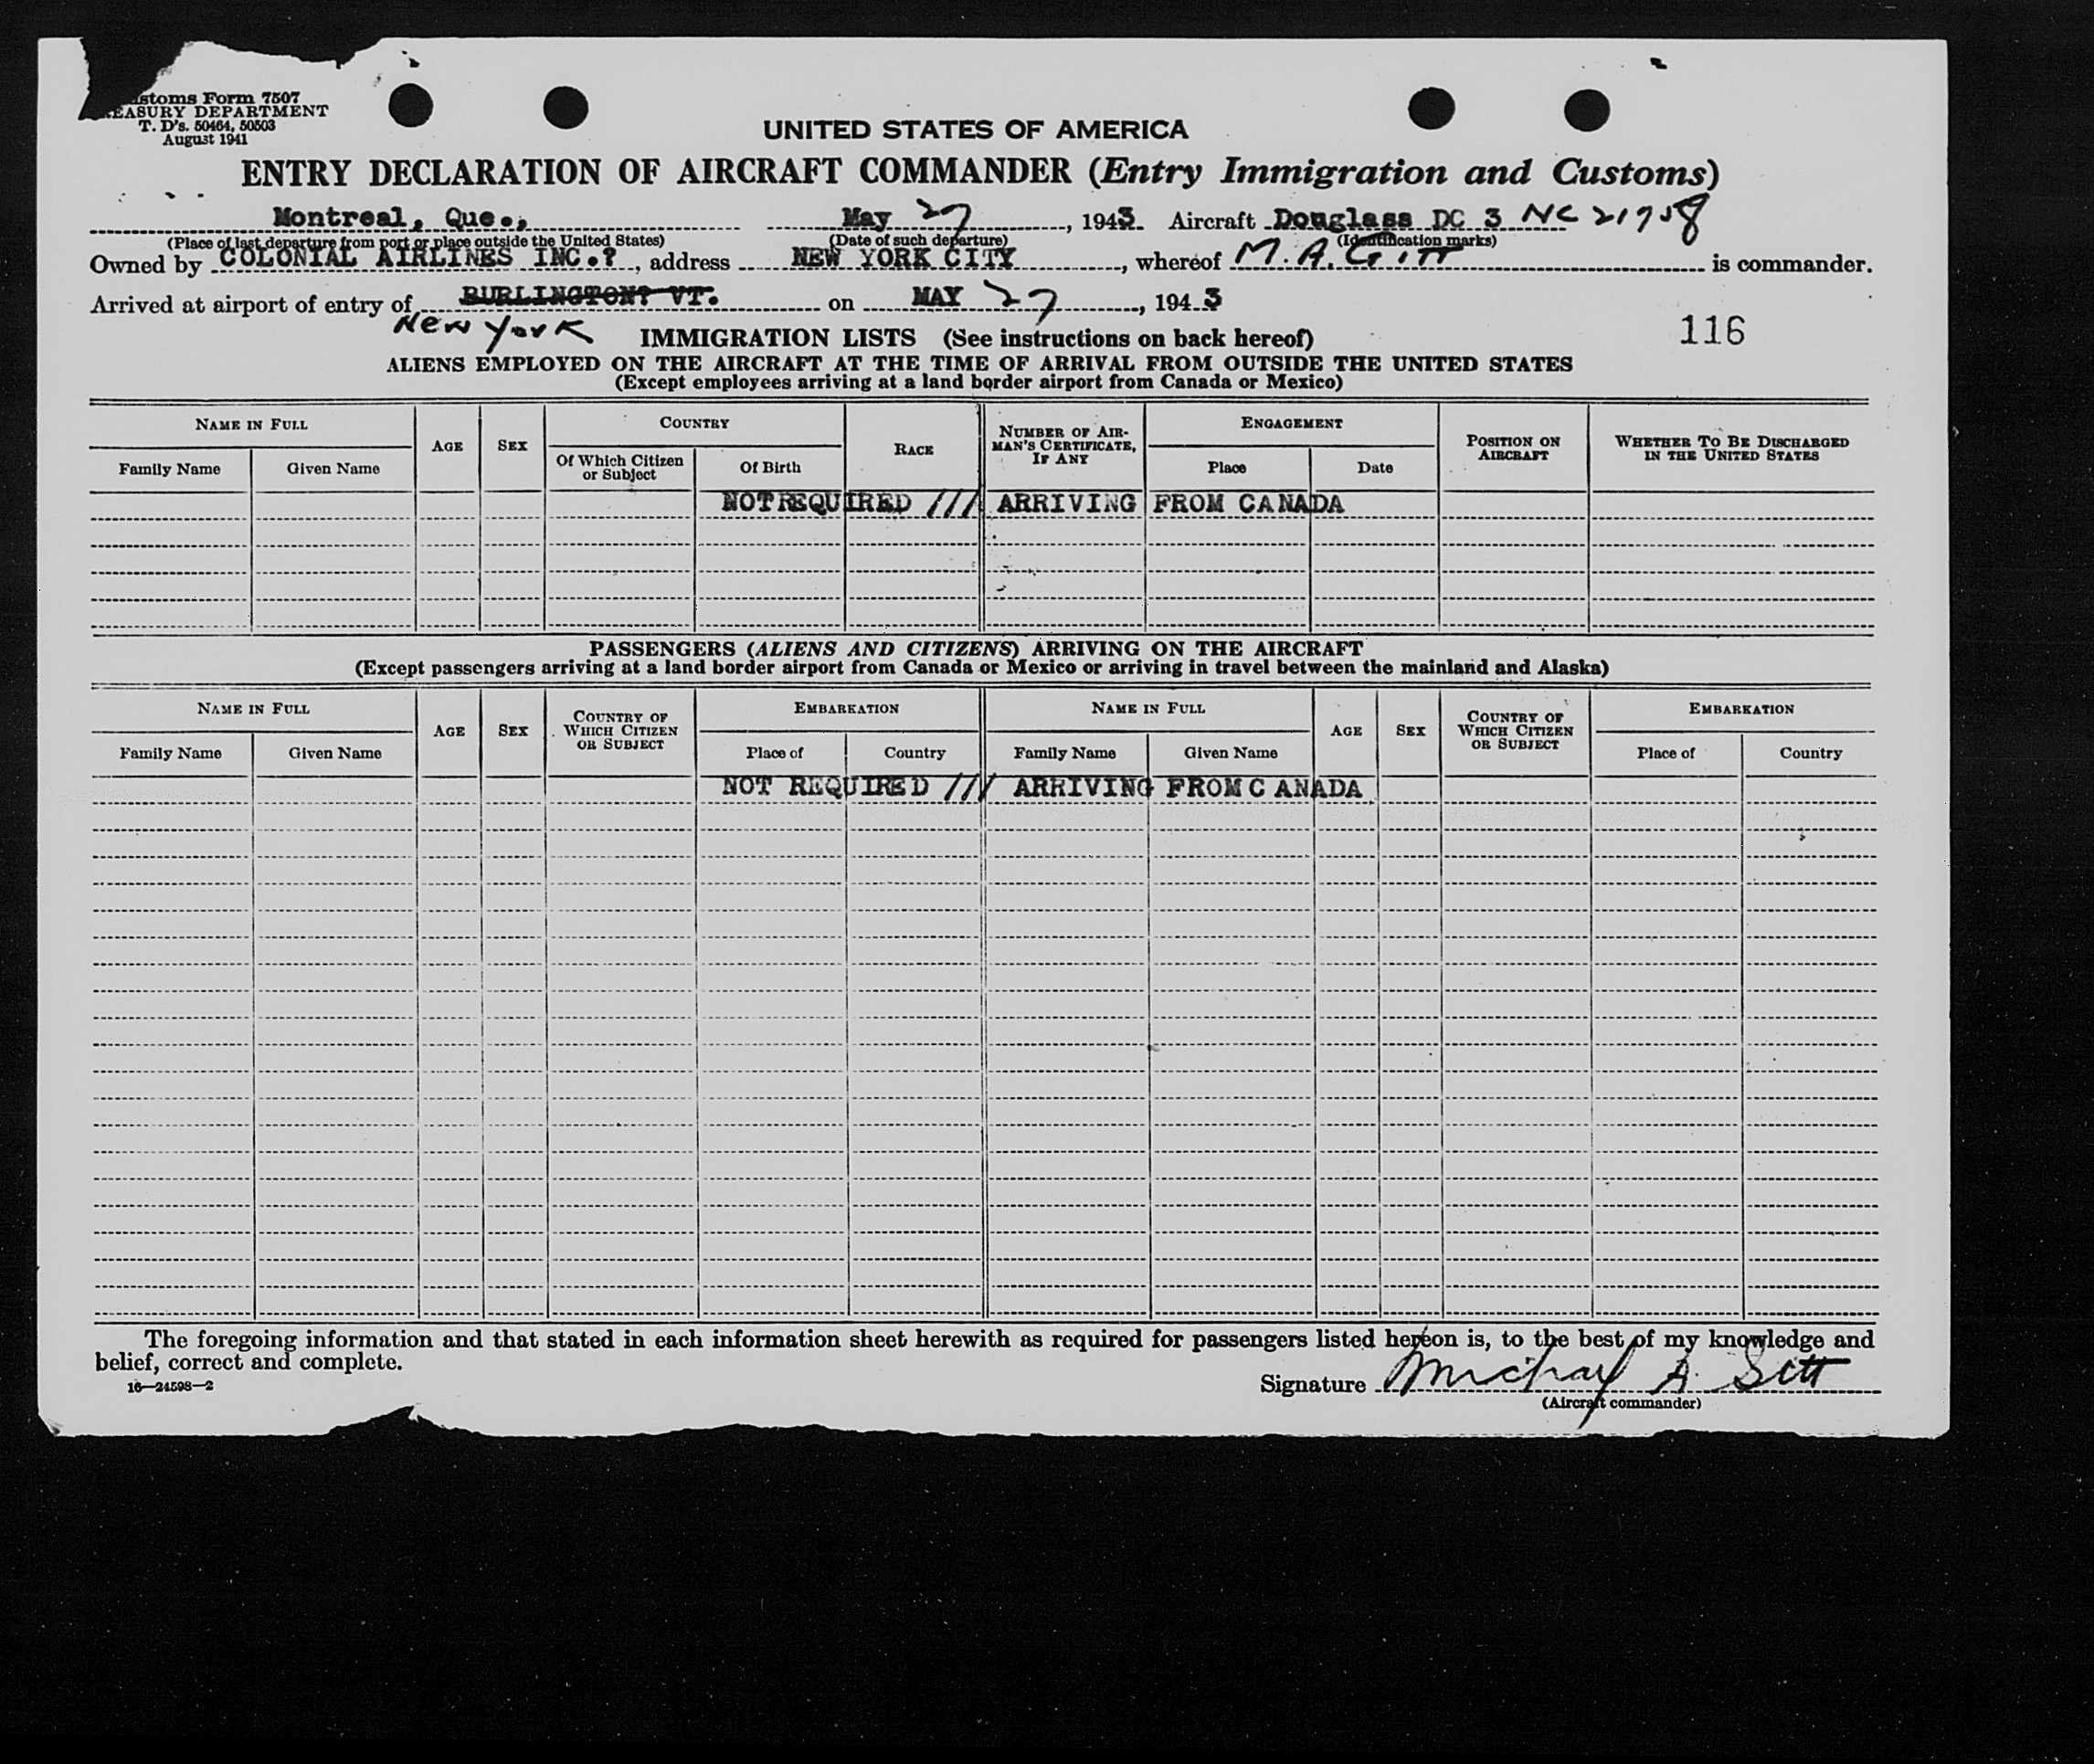 stoms Form 7507
EASURY DEPARTMENT
T. D's. 50464, 50503
August 1941
UNITED STATES OF AMERICA
ENTRY DECLARATION OF AIRCRAFT COMMANDER (Entry Immigration and Customs)
Montreal, Que., May 27, 1943 Aircraft Douglass DC 3 NC 21758
(Place of last departure from port or place outside the United States) (Date of such departure) (Identification marks)
Owned by COLONIAL AIRLINES INC.?, address NEW YORK CITY, whereof M. A. Gitt is commander.
Arrived at airport of entry of BURLINGTON? VT. on MAY 27, 1943
New York
IMMIGRATION LISTS (See instructions on back hereof) 116
ALIENS EMPLOYED ON THE AIRCRAFT AT THE TIME OF ARRIVAL FROM OUTSIDE THE UNITED STATES
(Except employees arriving at a land border airport from Canada or Mexico)
NAME IN FULL
Family Name Given Name
AGE
SEX
COUNTRY
Of Which Citizen or Subject Of Birth
RACE
NUMBER OF AIRMAN'S CERTIFICATE, IF ANY
ENGAGEMENT
Place Date
POSITION ON AIRCRAFT
WHETHER TO BE DISCHARGED IN THE UNITED STATES
NOT REQUIRED /// ARRIVING FROM CANADA
PASSENGERS (ALIENS AND CITIZENS) ARRIVING ON THE AIRCRAFT
(Except passengers arriving at a land border airport from Canada or Mexico or arriving in travel between the mainland and Alaska)
NAME IN FULL
Family Name Given Name
AGE
SEX
COUNTRY OF WHICH CITIZEN OR SUBJECT
EMBARKATION
Place of Country
NAME IN FULL
Family Name Given Name
AGE
SEX
COUNTRY OF WHICH CITIZEN OR SUBJECT
EMBARKATION
Place of Country
NOT REQUIRED /// ARRIVING FROM C ANADA
The foregoing information and that stated in each information sheet herewith as required for passengers listed hereon is, to the best of my knowledge and
belief, correct and complete.
16—24598—2
Signature Michael A. Gitt
(Aircraft commander)